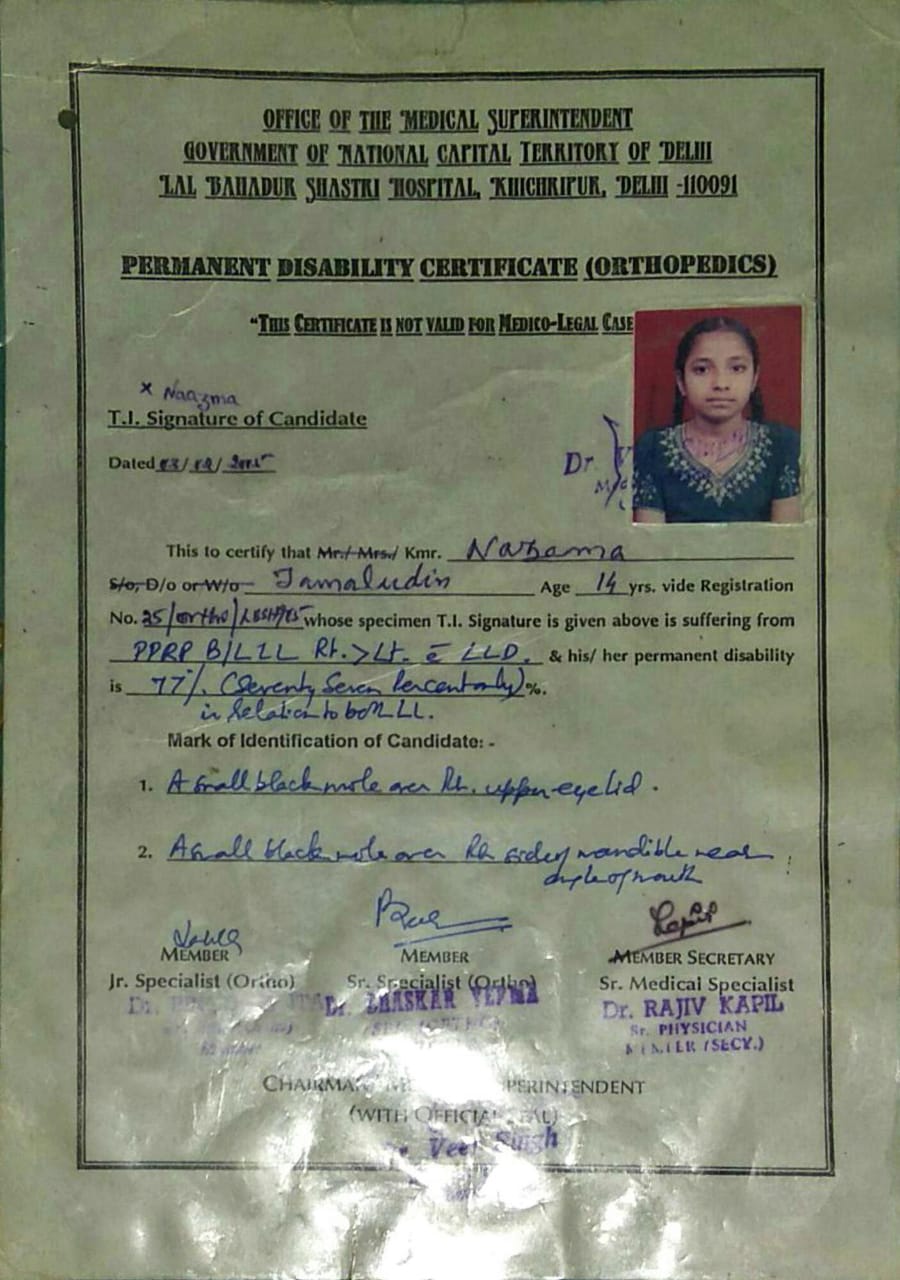 OFFICE OF THE MEDICAL SUPERINTENDENT
GOVERNMENT OF NATIONAL CAPITAL TERRITORY OF DELHI
LAL BAHADUR SHASTRI HOSPITAL, KHICHRIPUR, DELHI -110091
PERMANENT DISABILITY CERTIFICATE (ORTHOPEDICS)
"THIS CERTIFICATE IS NOT VALID FOR MEDICO-LEGAL CASE
x Naazma
T.I. Signature of Candidate
Dated
Dr. V
This to certify that Mr./ Mrs./ Kmr. Nazama
S/o, D/o or W/o Jamaludin Age 14 yrs. vide Registration
No. 25/ortho/ whose specimen T.I. Signature is given above is suffering from
PPRP B/L LL Rt. > Lt. c̄ LLD. & his/ her permanent disability
is 77% (Seventy Seven Percent only) %.
in relation to both LL.
Mark of Identification of Candidate: -
1. A small black mole over Rt. upper eyelid .
2. A small black mole over Rt. side of mandible near
angle of mouth
MEMBER MEMBER MEMBER SECRETARY
Jr. Specialist (Ortho) Sr. Specialist (Ortho) Sr. Medical Specialist
Dr. Dr. BHASKAR VERMA Dr. RAJIV KAPIL
Sr. PHYSICIAN
MEMBER (SECY.)
CHAIRMAN SUPERINTENDENT
(WITH OFFICIAL SEAL)
Dr. Veer Singh